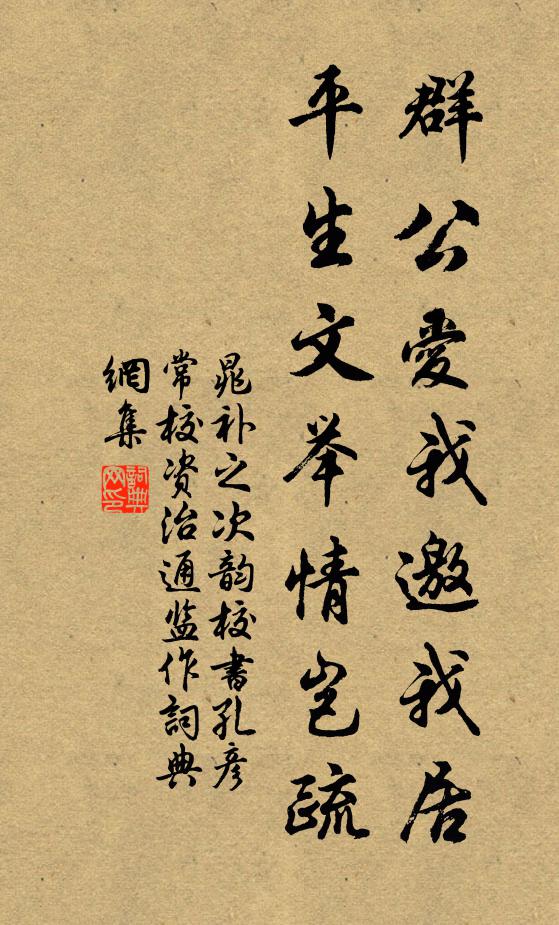 群公爱我邀我居
平生文举情岂疏
晁补之次韵校书孔彦
常校资治通监作词典
网集
词典
网印